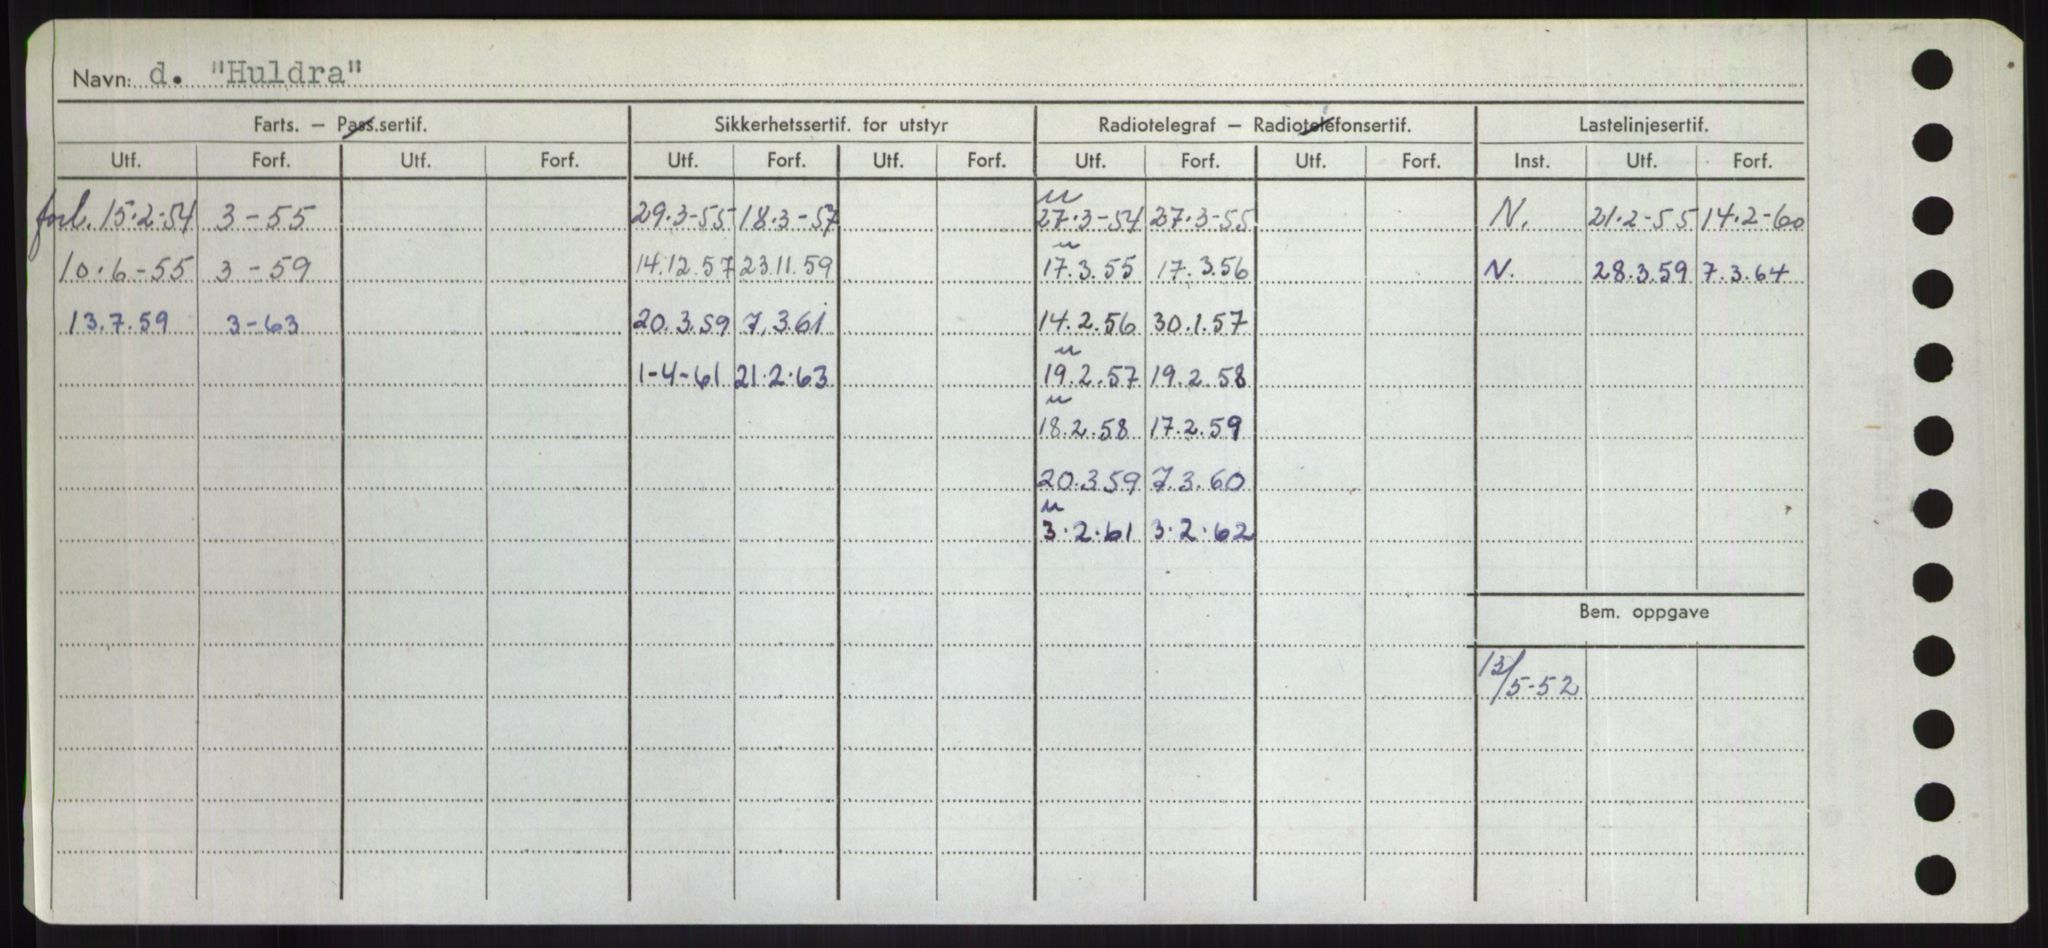 Navn: d. "Huldra"
Farts. — Pass.sertif. Sikkerhetssertif. for utstyr Radiotelegraf — Radiotelefonsertif. Lastelinjesertif.
Utf. Forf. Utf. Forf. Utf. Forf. Utf. Forf. Utf. Forf. Utf. Forf. Inst. Utf. Forf.
u
forl. 15.2-54 3-55 29.3-55 18.3-57 27.3-54 27.3-55 N. 21.2-55 14.2-60
u
10.6-55 3-59 14.12.57 23.11.59 17.3.55 17.3.56 N. 28.3.59 7.3.64
13.7.59 3-63 20.3.59 7.3.61 14.2.56 30.1.57
u
1-4-61 21.2.63 19.2.57 19.2.58
u
18.2.58 17.2.59
20.3.59 7.3.60
u
3.2.61 3.2.62
Bem. oppgave
13/5-52